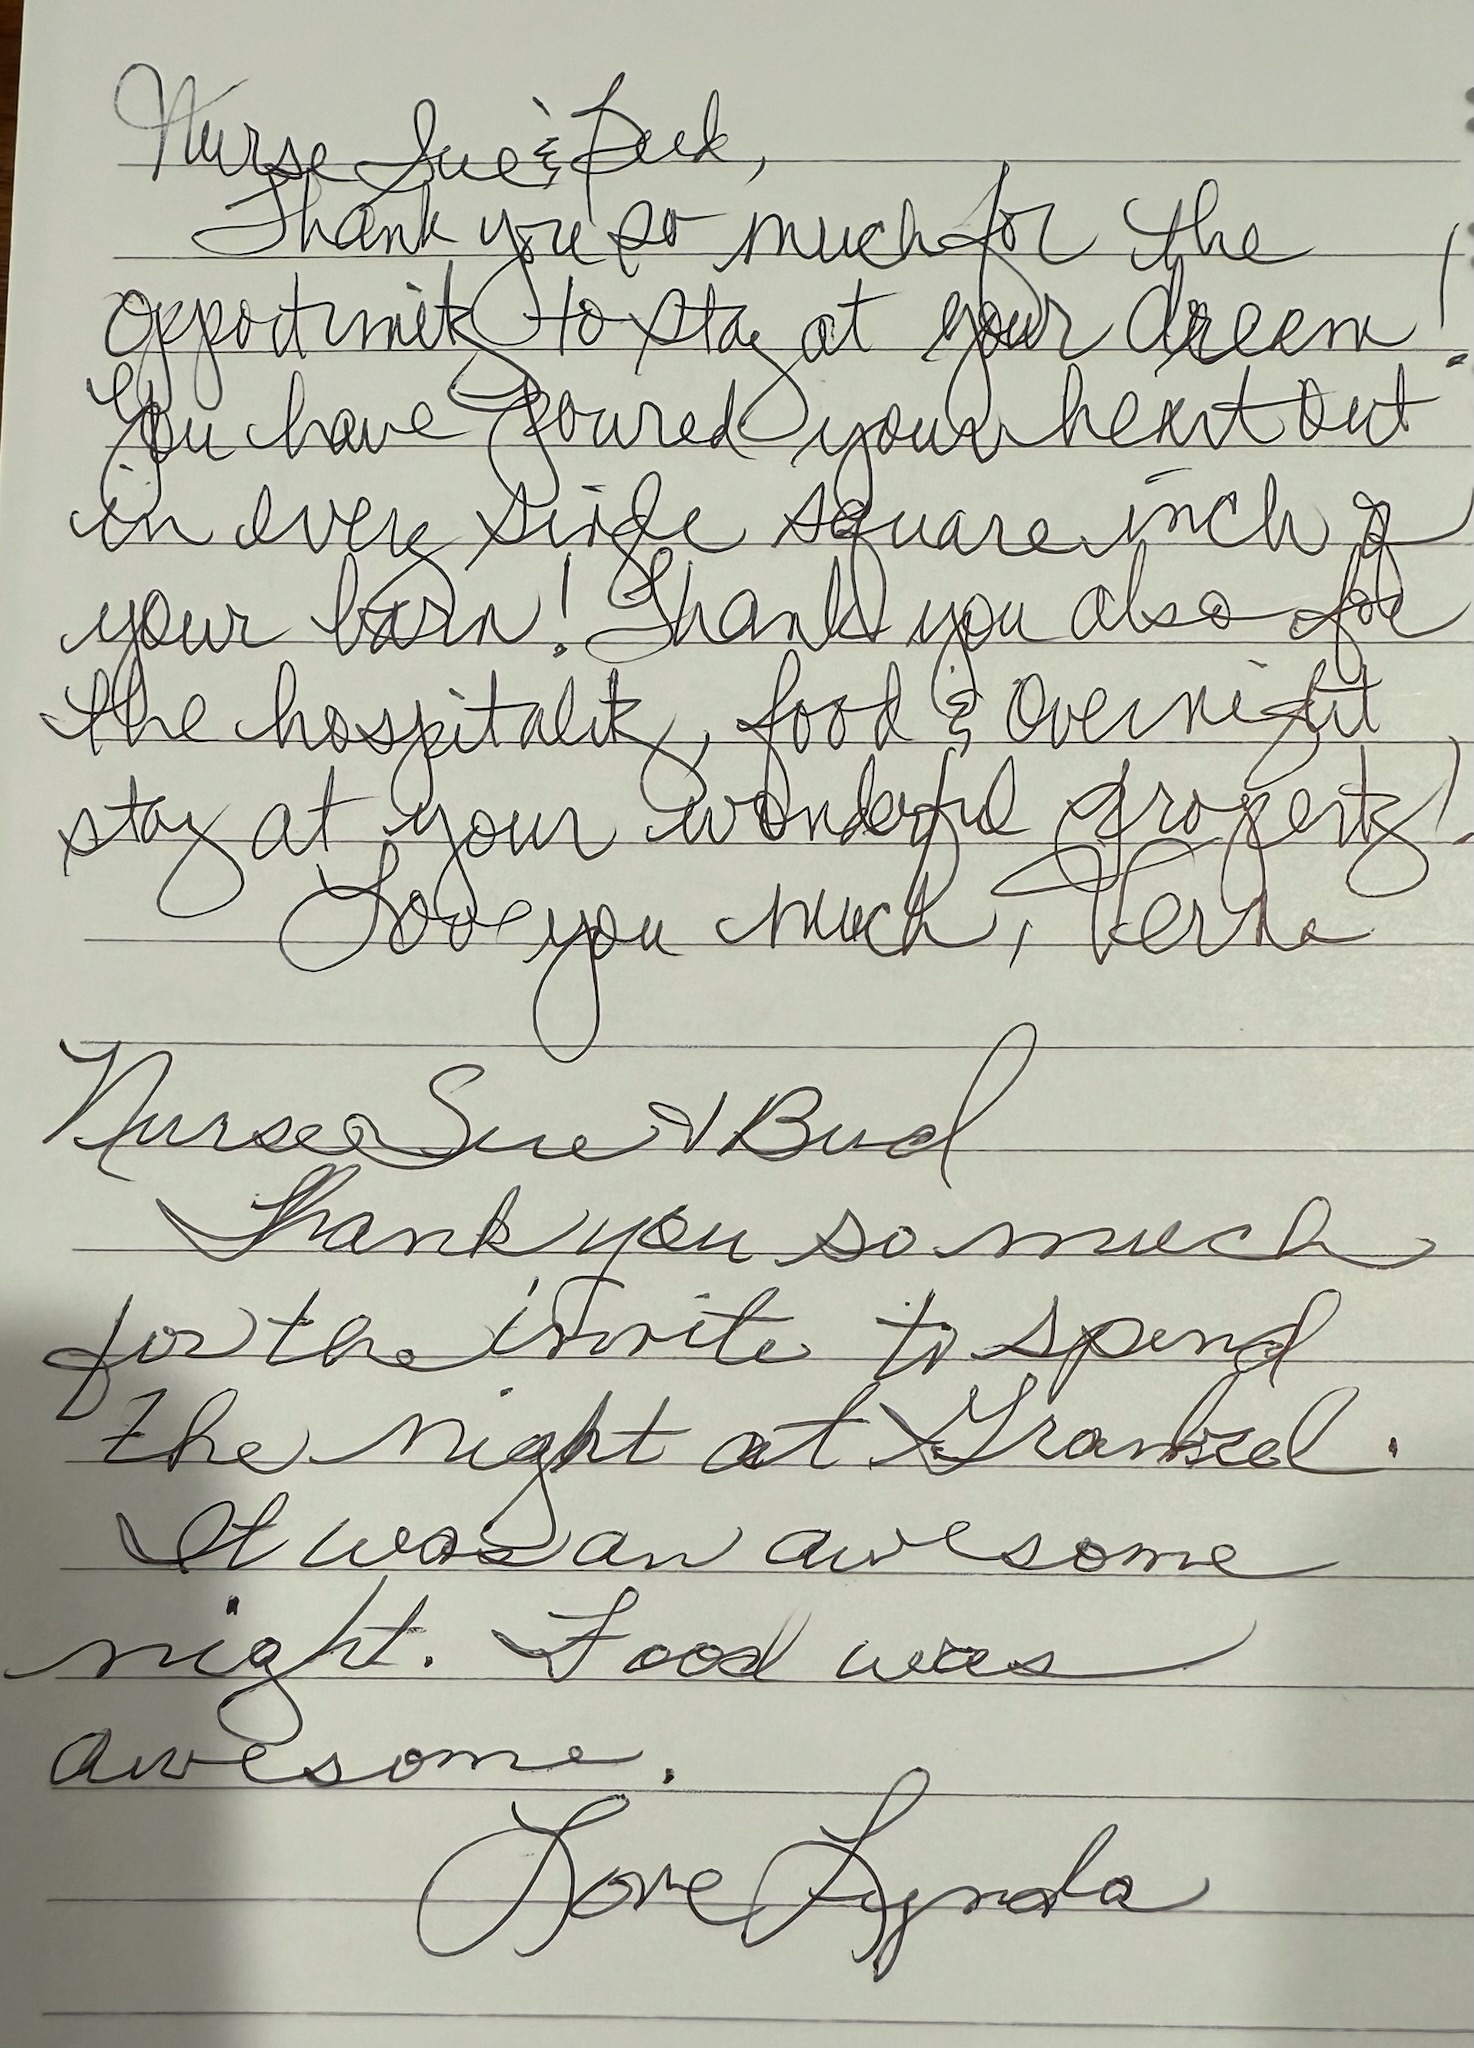 Nurse Sue &
Thank you so much for the
opportunity to stay at your dream!
You have poured your heart out
in every single square inch of
your barn! Thank you also for
the hospitality, food & overnight
stay at your wonderful property!
Love you much, Verna
Nurse Sue & Bud
Thank you so much
for the invite to spend
the night at
It was an awesome
night. Food was
awesome.
Love Lynda